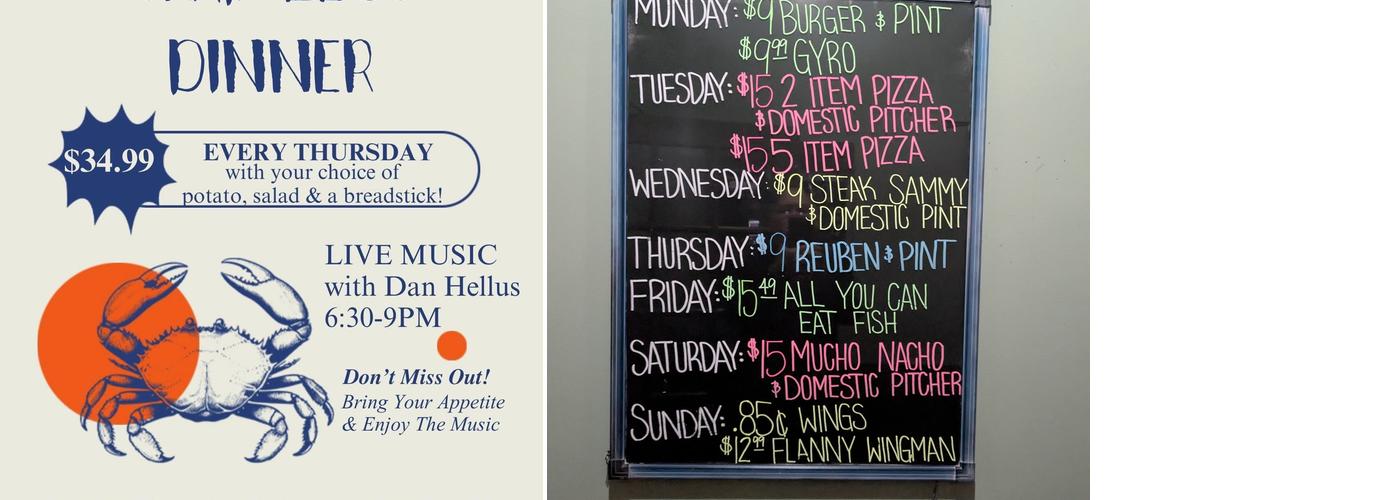 DINNER
$34.99
EVERY THURSDAY
with your choice of
potato, salad & a breadstick!
LIVE MUSIC
with Dan Hellus
6:30-9PM
Don't Miss Out!
Bring Your Appetite
& Enjoy The Music
MONDAY: $9 BURGER & PINT
$9.99 GYRO
TUESDAY: $15 2 ITEM PIZZA
& DOMESTIC PITCHER
$15 5 ITEM PIZZA
WEDNESDAY: $9 STEAK SAMMY
& DOMESTIC PINT
THURSDAY: $9 REUBEN & PINT
FRIDAY: $15.49 ALL YOU CAN
EAT FISH
SATURDAY: $15 MUCHO NACHO
& DOMESTIC PITCHER
SUNDAY: .85¢ WINGS
$12.99 FLANNY WINGMAN